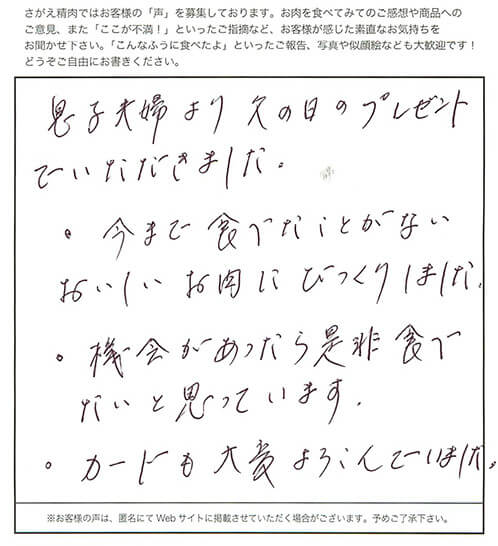 さがえ精肉ではお客様の「声」を募集しております。お肉を食べてみてのご感想や商品への
ご意見、また「ここが不満！」といったご指摘など、お客様が感じた素直なお気持ちを
お聞かせ下さい。「こんなふうに食べたよ」といったご報告、写真や似顔絵なども大歓迎です！
どうぞご自由にお書きください。
息子夫婦より父の日のプレゼント
でいただきました。
・今まで食べたことがない
おいしいお肉にびっくりしました。
・機会があったら是非食べ
たいと思っています.
・カードも大変よろこんでいました。
※お客様の声は、匿名にてWebサイトに掲載させていただく場合がございます。予めご了承下さい。